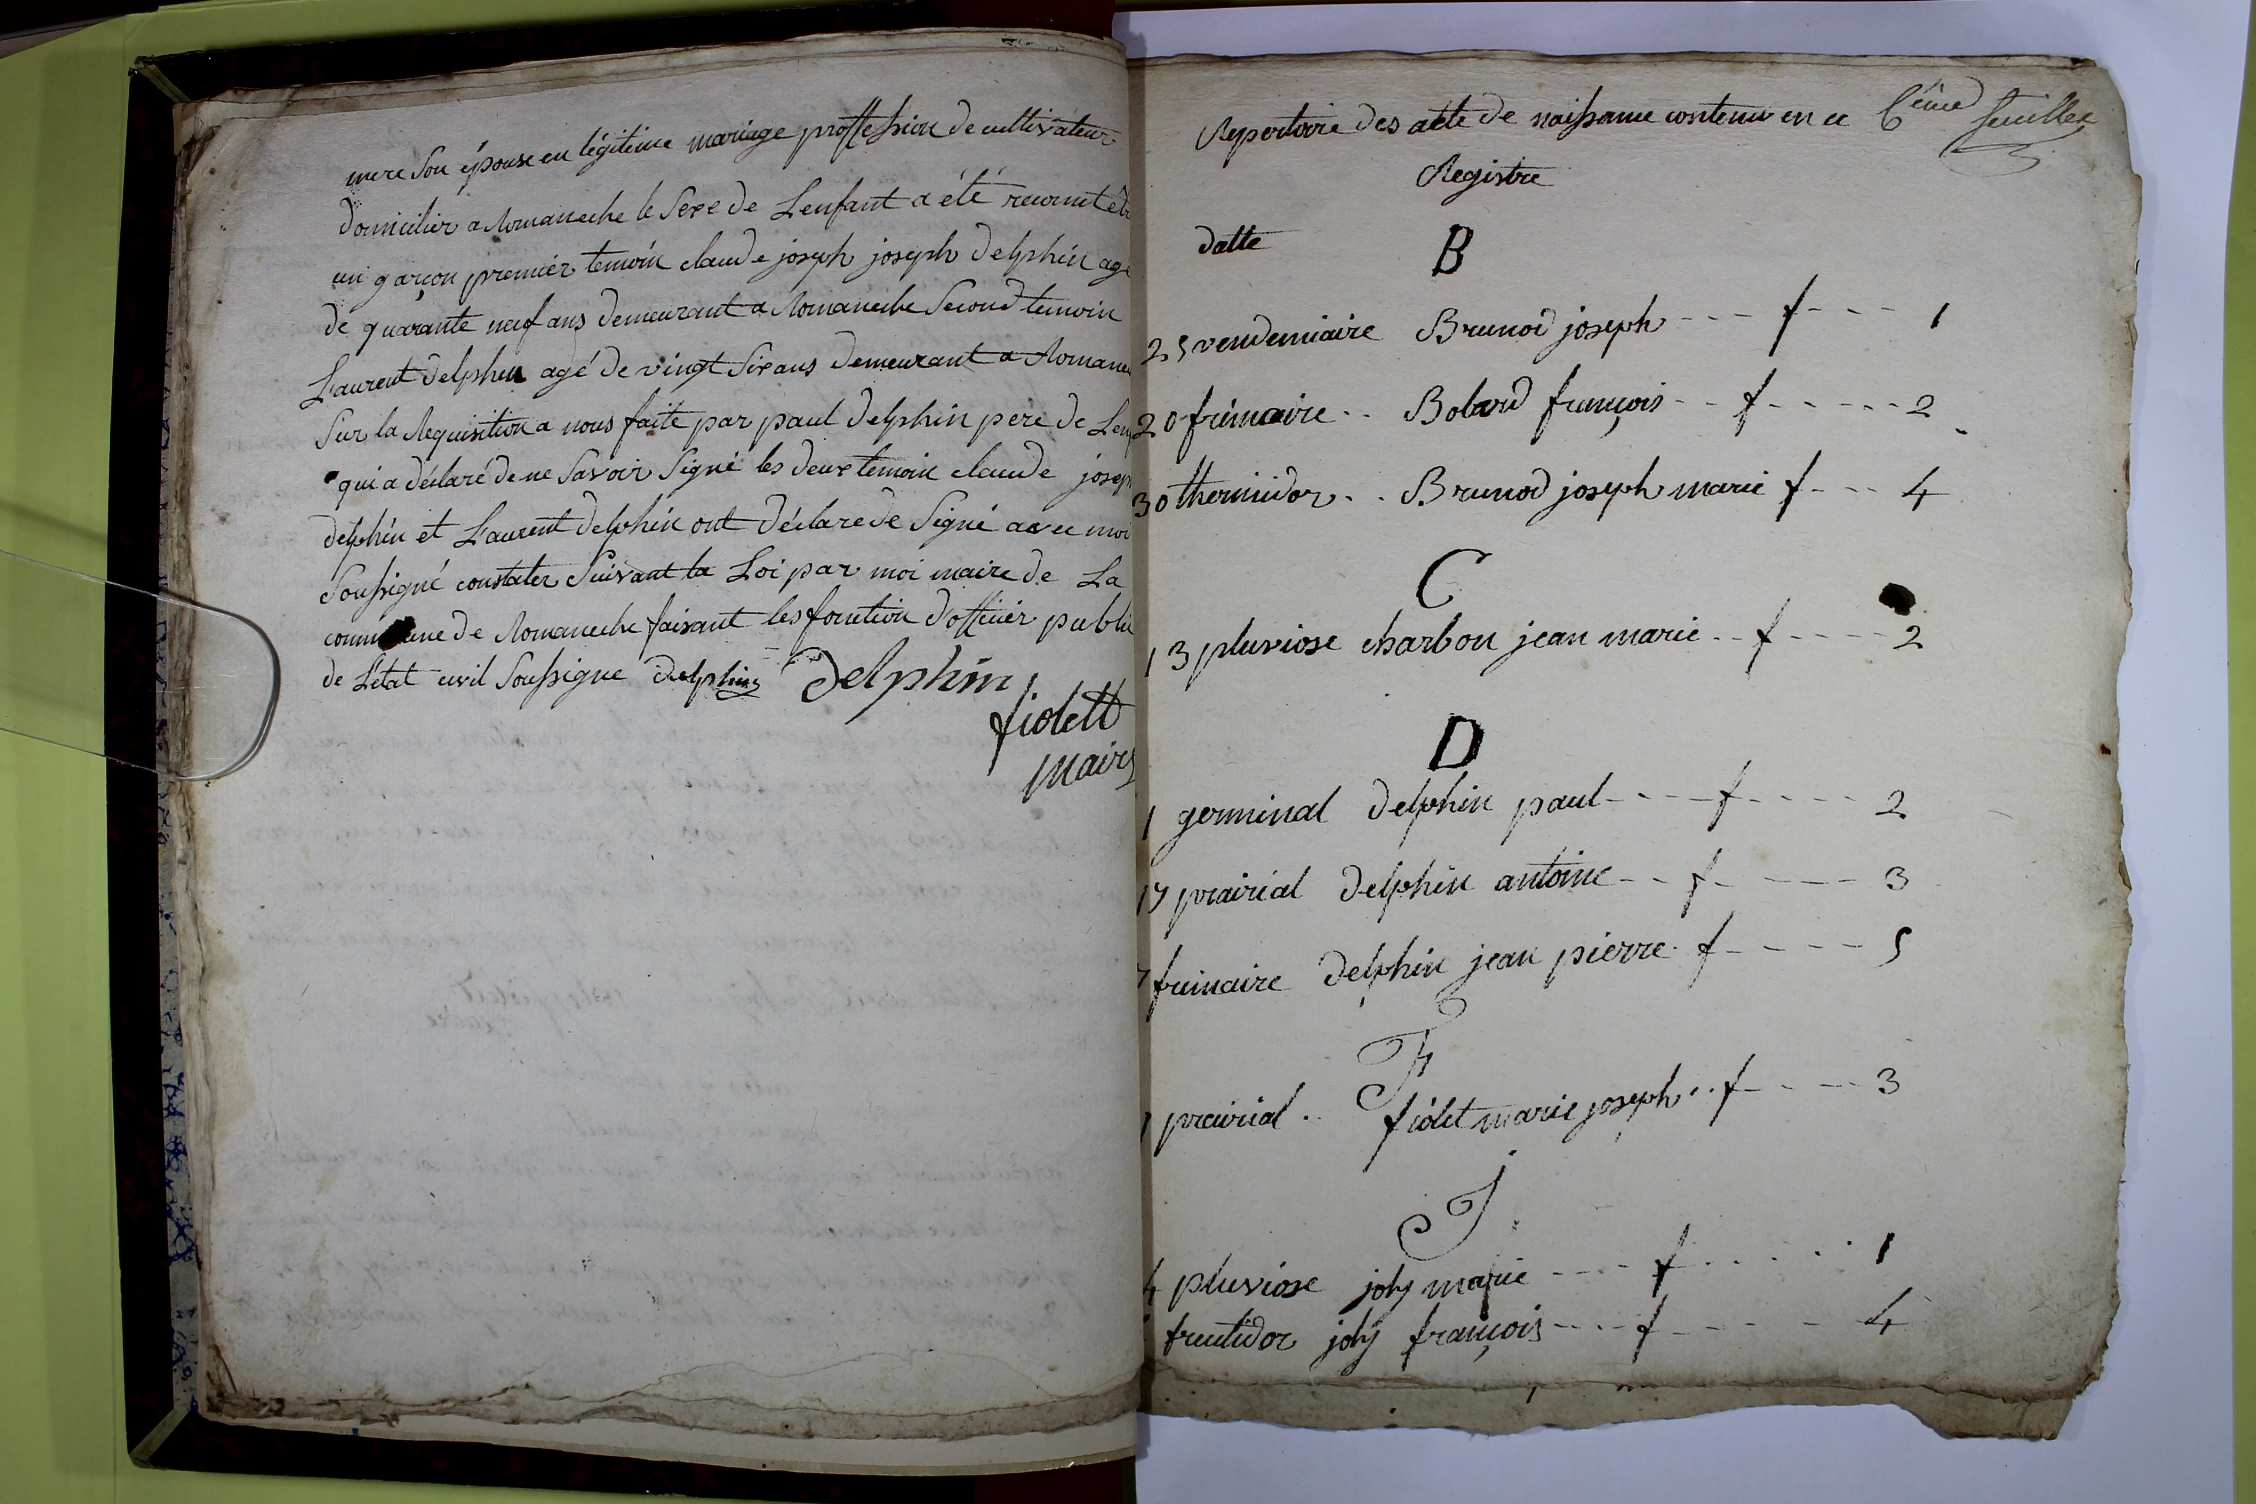 mere Son épouse en légitime mariage proffession de cultivateur
domicilier a Romaneche le Sexe de L'enfant a été reconnut
un garçon premier temoin claude joseph joseph delphin agé
de quarante neuf ans demeurant a Romaneche Second temoin
Laurent delphin agé de vingt Six ans demeurant a Romane
Sur la Requisition a nous faite par paul delphin pere de
qui a déclaré de ne Savoir Signé les deux temoin claude josep
delphin et Laurent delphin ont déclare de Signé avec moi
Soussigné constater Suivant la Loi par moi maire de La
commune de Romaneche faisant les fonction d'officier public
de L'état civil Soussigne delphin delphin
fiolett
maire
6eme feuillet
Repertoire des acte de naissance contenu en ce
Registre
datte B
25 vendemiaire Brunod joseph --- f --- 1
20 frimaire .. Bobard françois -- f ----- 2
30 thermidor .. Brunod joseph marie f --- 4
C
13 pluviose charbon jean marie .. f ---- 2
D
1 germinal delphin paul --- f ---- 2
17 prairial delphin antoine -- f ---- 3
7 frimaire delphin jean pierre f ---- 5
F
prairial .. fiolet marie joseph .. f ---- 3
J
4 pluviose joly marie ---- f ..... 1
fructidor joly françois ---- f ---- 4